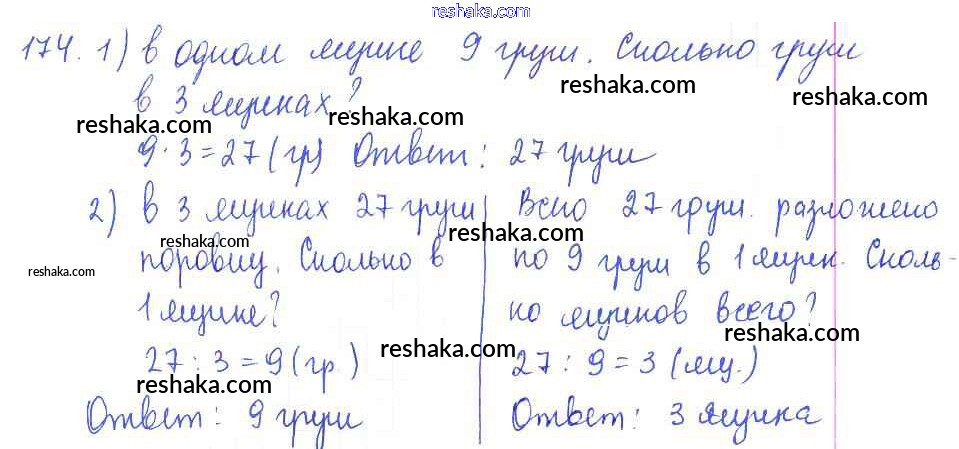 reshaka.com
174. 1) В одном ящике 9 груш. Сколько груш
в 3 ящиках?
reshaka.com
reshaka.com
reshaka.com
reshaka.com
reshaka.com
9·3=27(гр) Ответ: 27 груш
2) В 3 ящиках 27 груш
поровну. Сколько в
1 ящике?
27:3=9(гр.)
Ответ: 9 груш
Всего 27 груш. разложено
по 9 груш в 1 ящик. Сколь-
ко ящиков всего?
27:9=3(ящ.)
Ответ: 3 ящика
reshaka.com
reshaka.com
reshaka.com
reshaka.com
reshaka.com
reshaka.com
reshaka.com